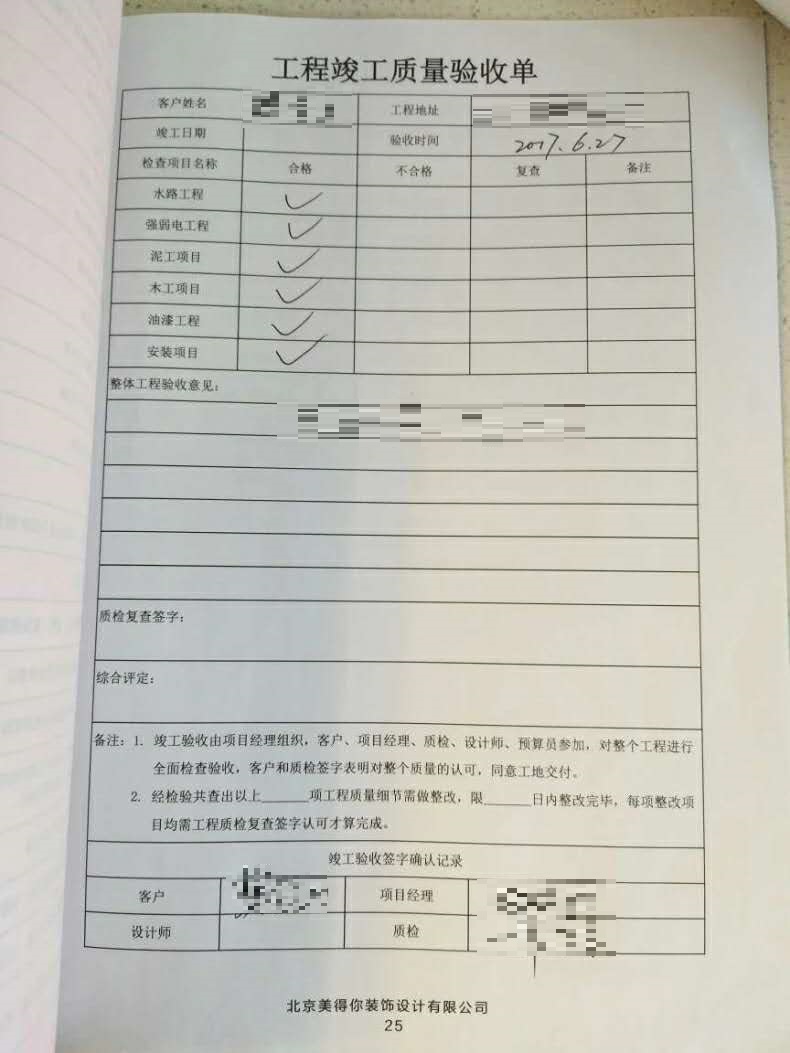 工程竣工质量验收单
客户姓名 工程地址
竣工日期 验收时间 2017.6.27
检查项目名称 合格 不合格 复查 备注
水路工程 ✓
强弱电工程 ✓
泥工项目 ✓
木工项目 ✓
油漆工程 ✓
安装项目 ✓
整体工程验收意见：
质检复查签字：
综合评定：
备注：1. 竣工验收由项目经理组织，客户、项目经理、质检、设计师、预算员参加，对整个工程进行
全面检查验收，客户和质检签字表明对整个质量的认可，同意工地交付。
2. 经检验共查出以上______项工程质量细节需做整改，限______日内整改完毕，每项整改项
目均需工程质检复查签字认可才算完成。
竣工验收签字确认记录
客户 项目经理
设计师 质检
北京美得你装饰设计有限公司
25